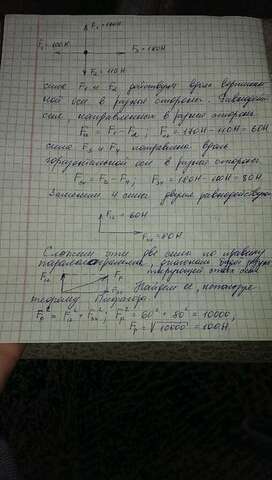 F₁=170Н
F₄=100Н F₃=180Н
F₂=110Н
силы F₁ и F₂ действуют вдоль вертикаль-
ной оси в разные стороны. Равнодейст.
сил, направленных в разные стороны
F₁₂ = F₁ - F₂; F₁₂ = 170Н - 110Н = 60Н
силы F₃ и F₄ направлены вдоль
горизонтальной оси в разные стороны
F₃₄ = F₃ - F₄; F₃₄ = 180Н - 100Н = 80Н
Заменим 4 силы двумя равнодействующ.
F₁₂ = 60Н
F₃₄ = 80Н
Сложим эти две силы по правилу
параллелограмма, диагональ будет равно-
действующей этих сил
F₁₂ Fр
F₃₄ Найдем её, используя
теорему Пифагора.
Fр² = F₁₂² + F₃₄²; Fр² = 60² + 80² = 10000,
Fр = √10000 = 100Н.